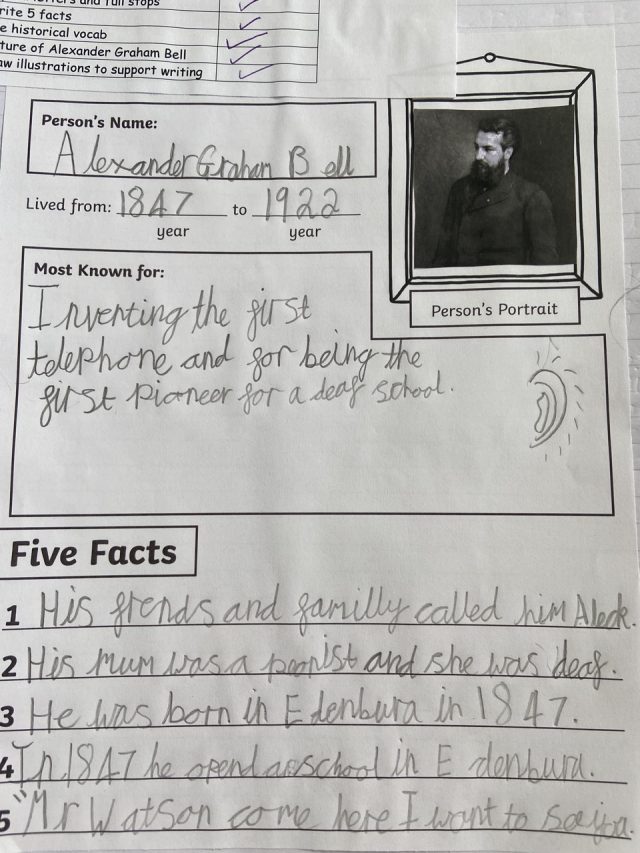 rite 5 facts
e historical vocab
ture of Alexander Graham Bell
aw illustrations to support writing
Person's Name:
Alexander Graham Bell
Lived from: 1847 to 1922
year year
Most Known for:
Inventing the first
telephone and for being the
first pioneer for a deaf school.
Person's Portrait
Five Facts
1 His frends and familly called him Aleck.
2 His mum was a peanist and she was deaf.
3 He was born in Edenbura in 1847.
4 In 1847 he opend a school in Edenbura.
5 "Mr Watson come here I want to see you.